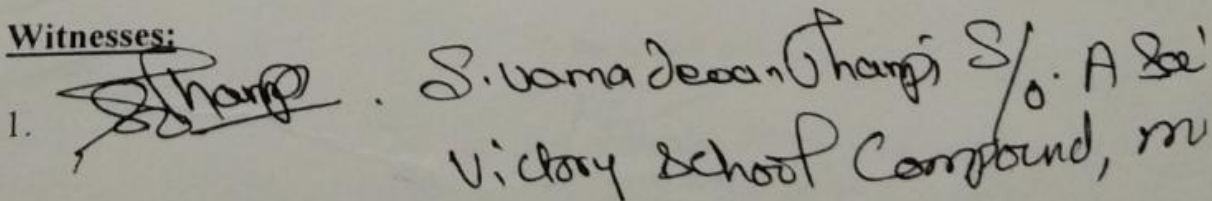 Witnesses:
1. S. vamadevan Thampi S/o. A
Victory School Compound,